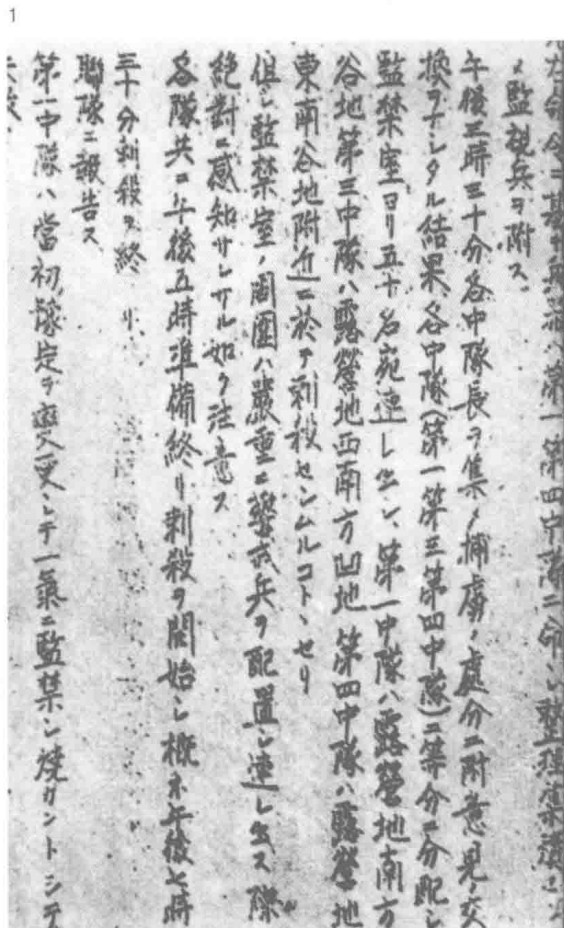 1
右命令ニ基キ兵器ハ第一第四中隊ニ命シ整理集積
メ監視兵ヲ附ス
午後三時三十分各中隊長ヲ集メ捕虜ノ處分ニ附意見ノ交
換ヲナシタル結果各中隊(第一第三第四中隊)ニ等分ニ分配シ
監禁室ヨリ五十名宛連レ出シ、第一中隊ハ露營地南方
谷地第三中隊ハ露營地西南方凹地第四中隊ハ露營地
東南谷地附近ニ於テ刺殺センムルコトヽセリ
但シ監禁室ノ周圍ハ嚴重ニ警戒兵ヲ配置シ連レ出ス際
絶對ニ感知サレサル如ク注意ス
各隊共ニ午後五時準備終リ刺殺ヲ開始シ概ネ午後七時
三十分刺殺ヲ終リ
聯隊ニ報告ス
第一中隊ハ當初ノ豫定ヲ變更シテ一氣ニ監禁シ焼カントシテ
失敗